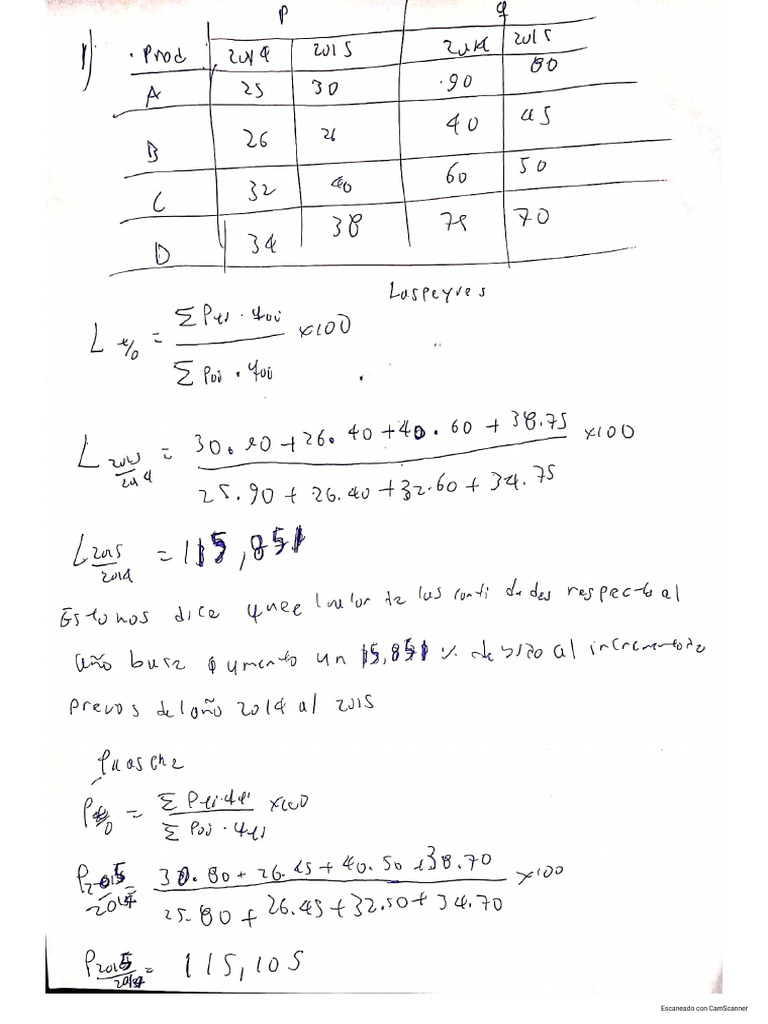 P q
1) · Prod 2014 2015 2014 2015
A 25 30 90 80
B 26 26 40 45
C 32 40 60 50
D 34 38 75 70
Laspeyres
L t/0 = Σ Pti · q0i / Σ P0i · q0i x100
L 2015/2014 = 30.90 + 26.40 + 40.60 + 38.75 / 25.90 + 26.40 + 32.60 + 34.75 x100
L 2015/2014 = 115,851
Esto nos dice que el valor de las canti dades respecto al
año base aumento un 15,851 % debido al incremento de
precios del año 2014 al 2015
Paasche
P t/0 = Σ Pti · qti / Σ P0i · qti x100
P 2015/2014 = 30.80 + 26.45 + 40.50 + 38.70 / 25.80 + 26.45 + 32.50 + 34.70 x100
P 2015/2014 = 115,105
Escaneado con CamScanner